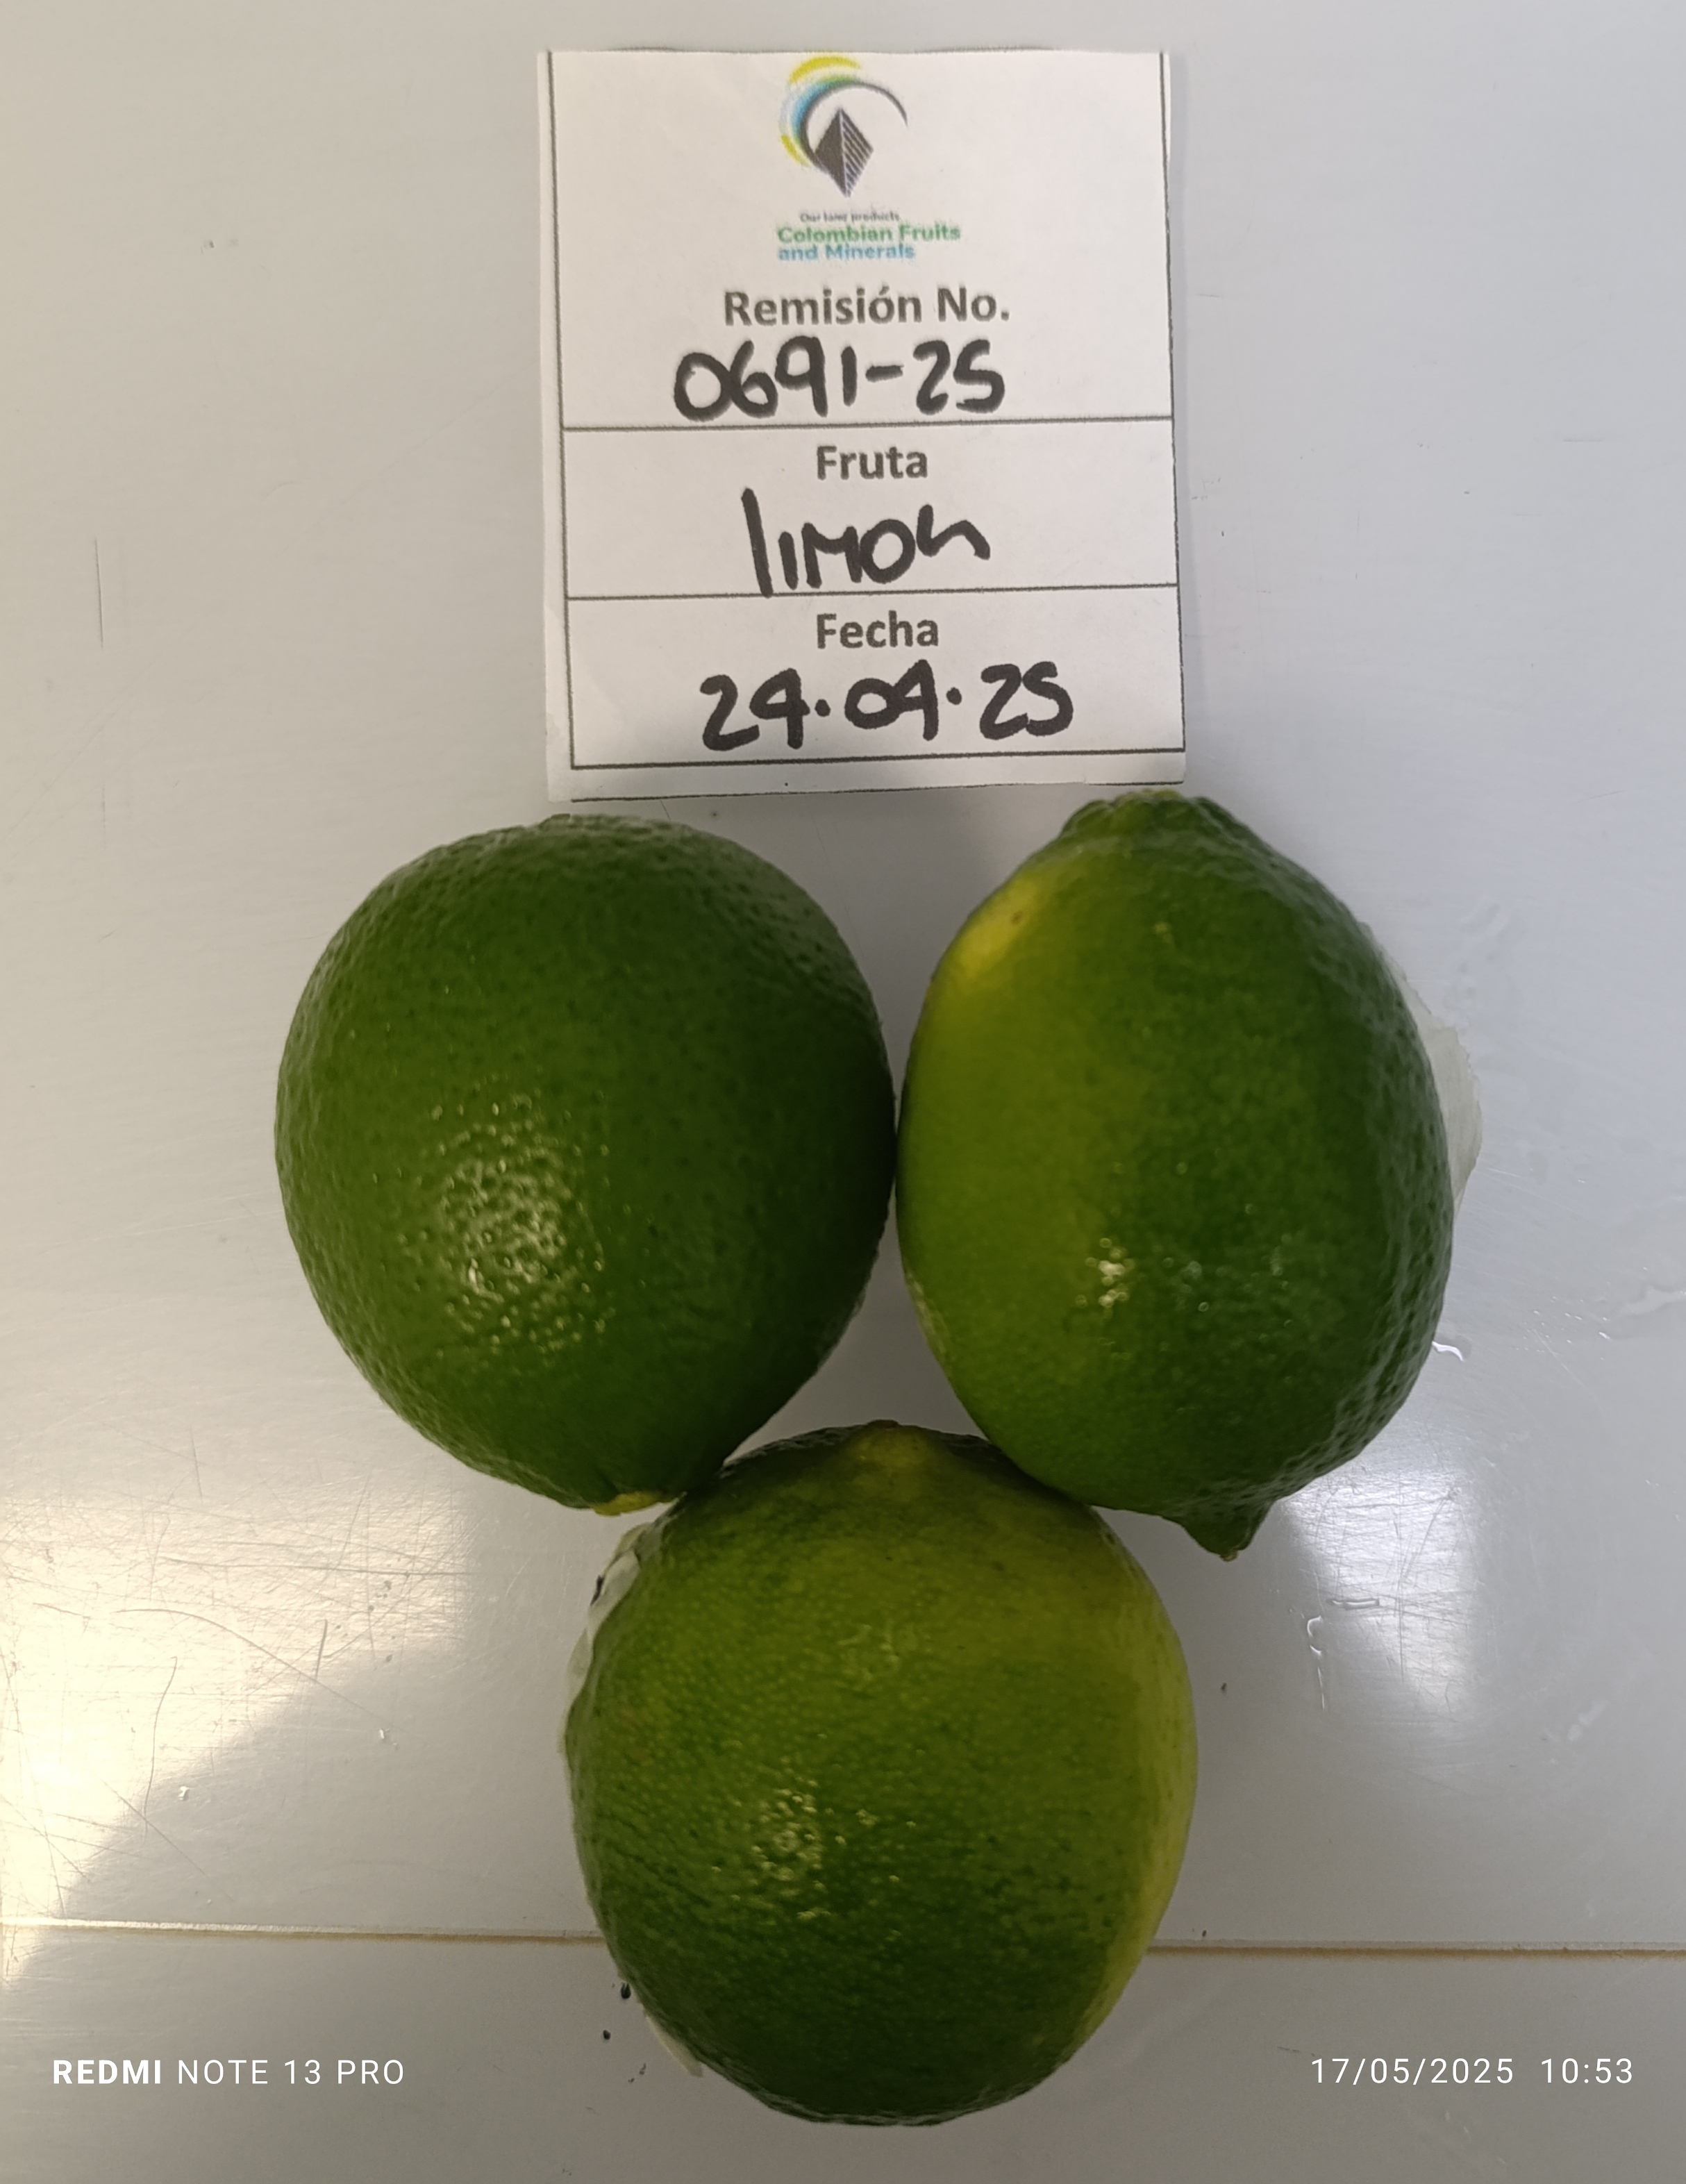 Our best products
Colombian Fruits
and Minerals
Remisión No.
0691-25
Fruta
limon
Fecha
24.04.25
REDMI NOTE 13 PRO
17/05/2025 10:53